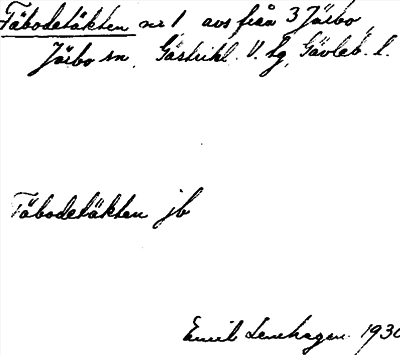 Fäbodetäkten nr 1 avs från 3 Järbo,
Järbo sn, Gästrikl. V. tg, Gävleb. l.
Fäbodetäkten jb
Emil Lenhagen 1930